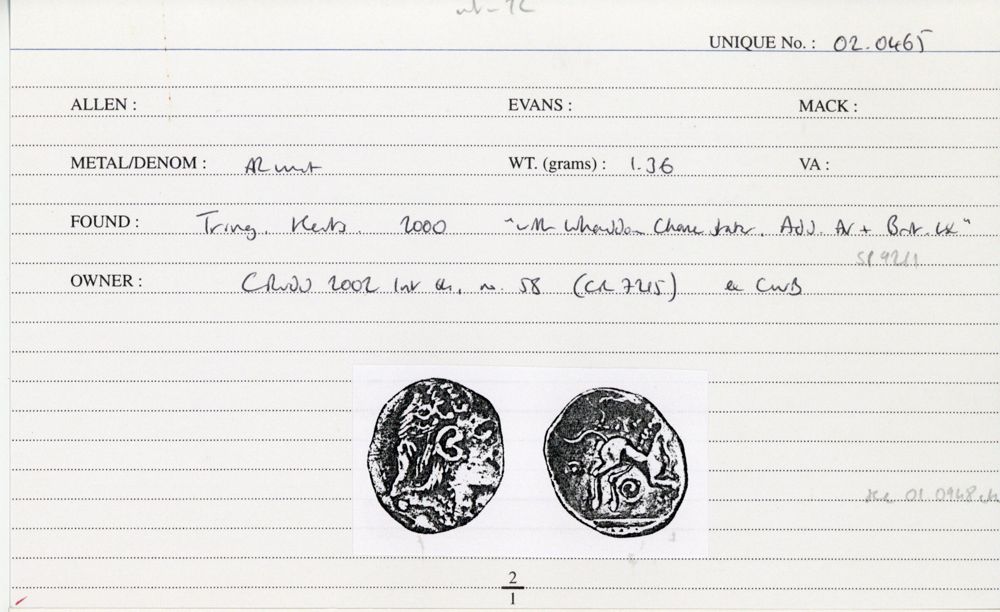 UNIQUE No. : 02.0465
ALLEN : EVANS : MACK :
METAL/DENOM : AR unit WT. (grams) : 1.36 VA :
FOUND : Tring, Herts. 2000 "with Whaddon Chase stater. Add. AV + Brit. LX"
OWNER : 2002 no. 58 (CR 7215) ex CWB
01.0948
2
1